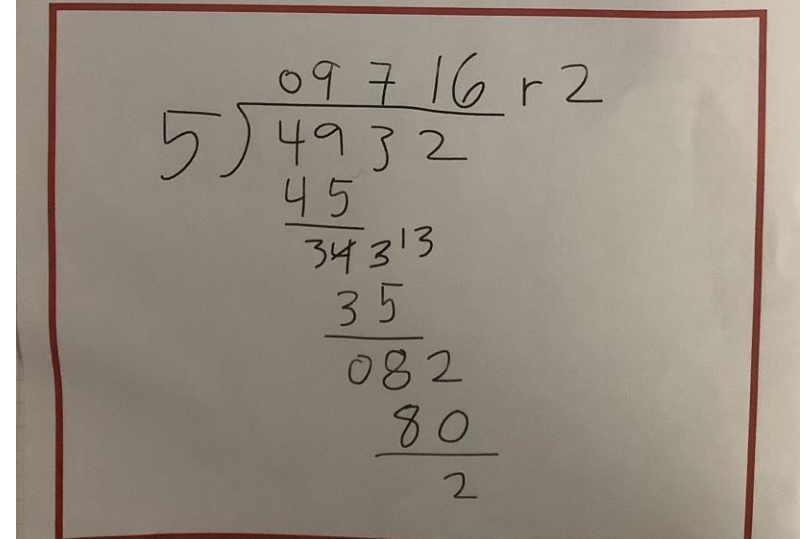 09 7 16 r 2
5)4932
45
34 3 13
35
082
80
2